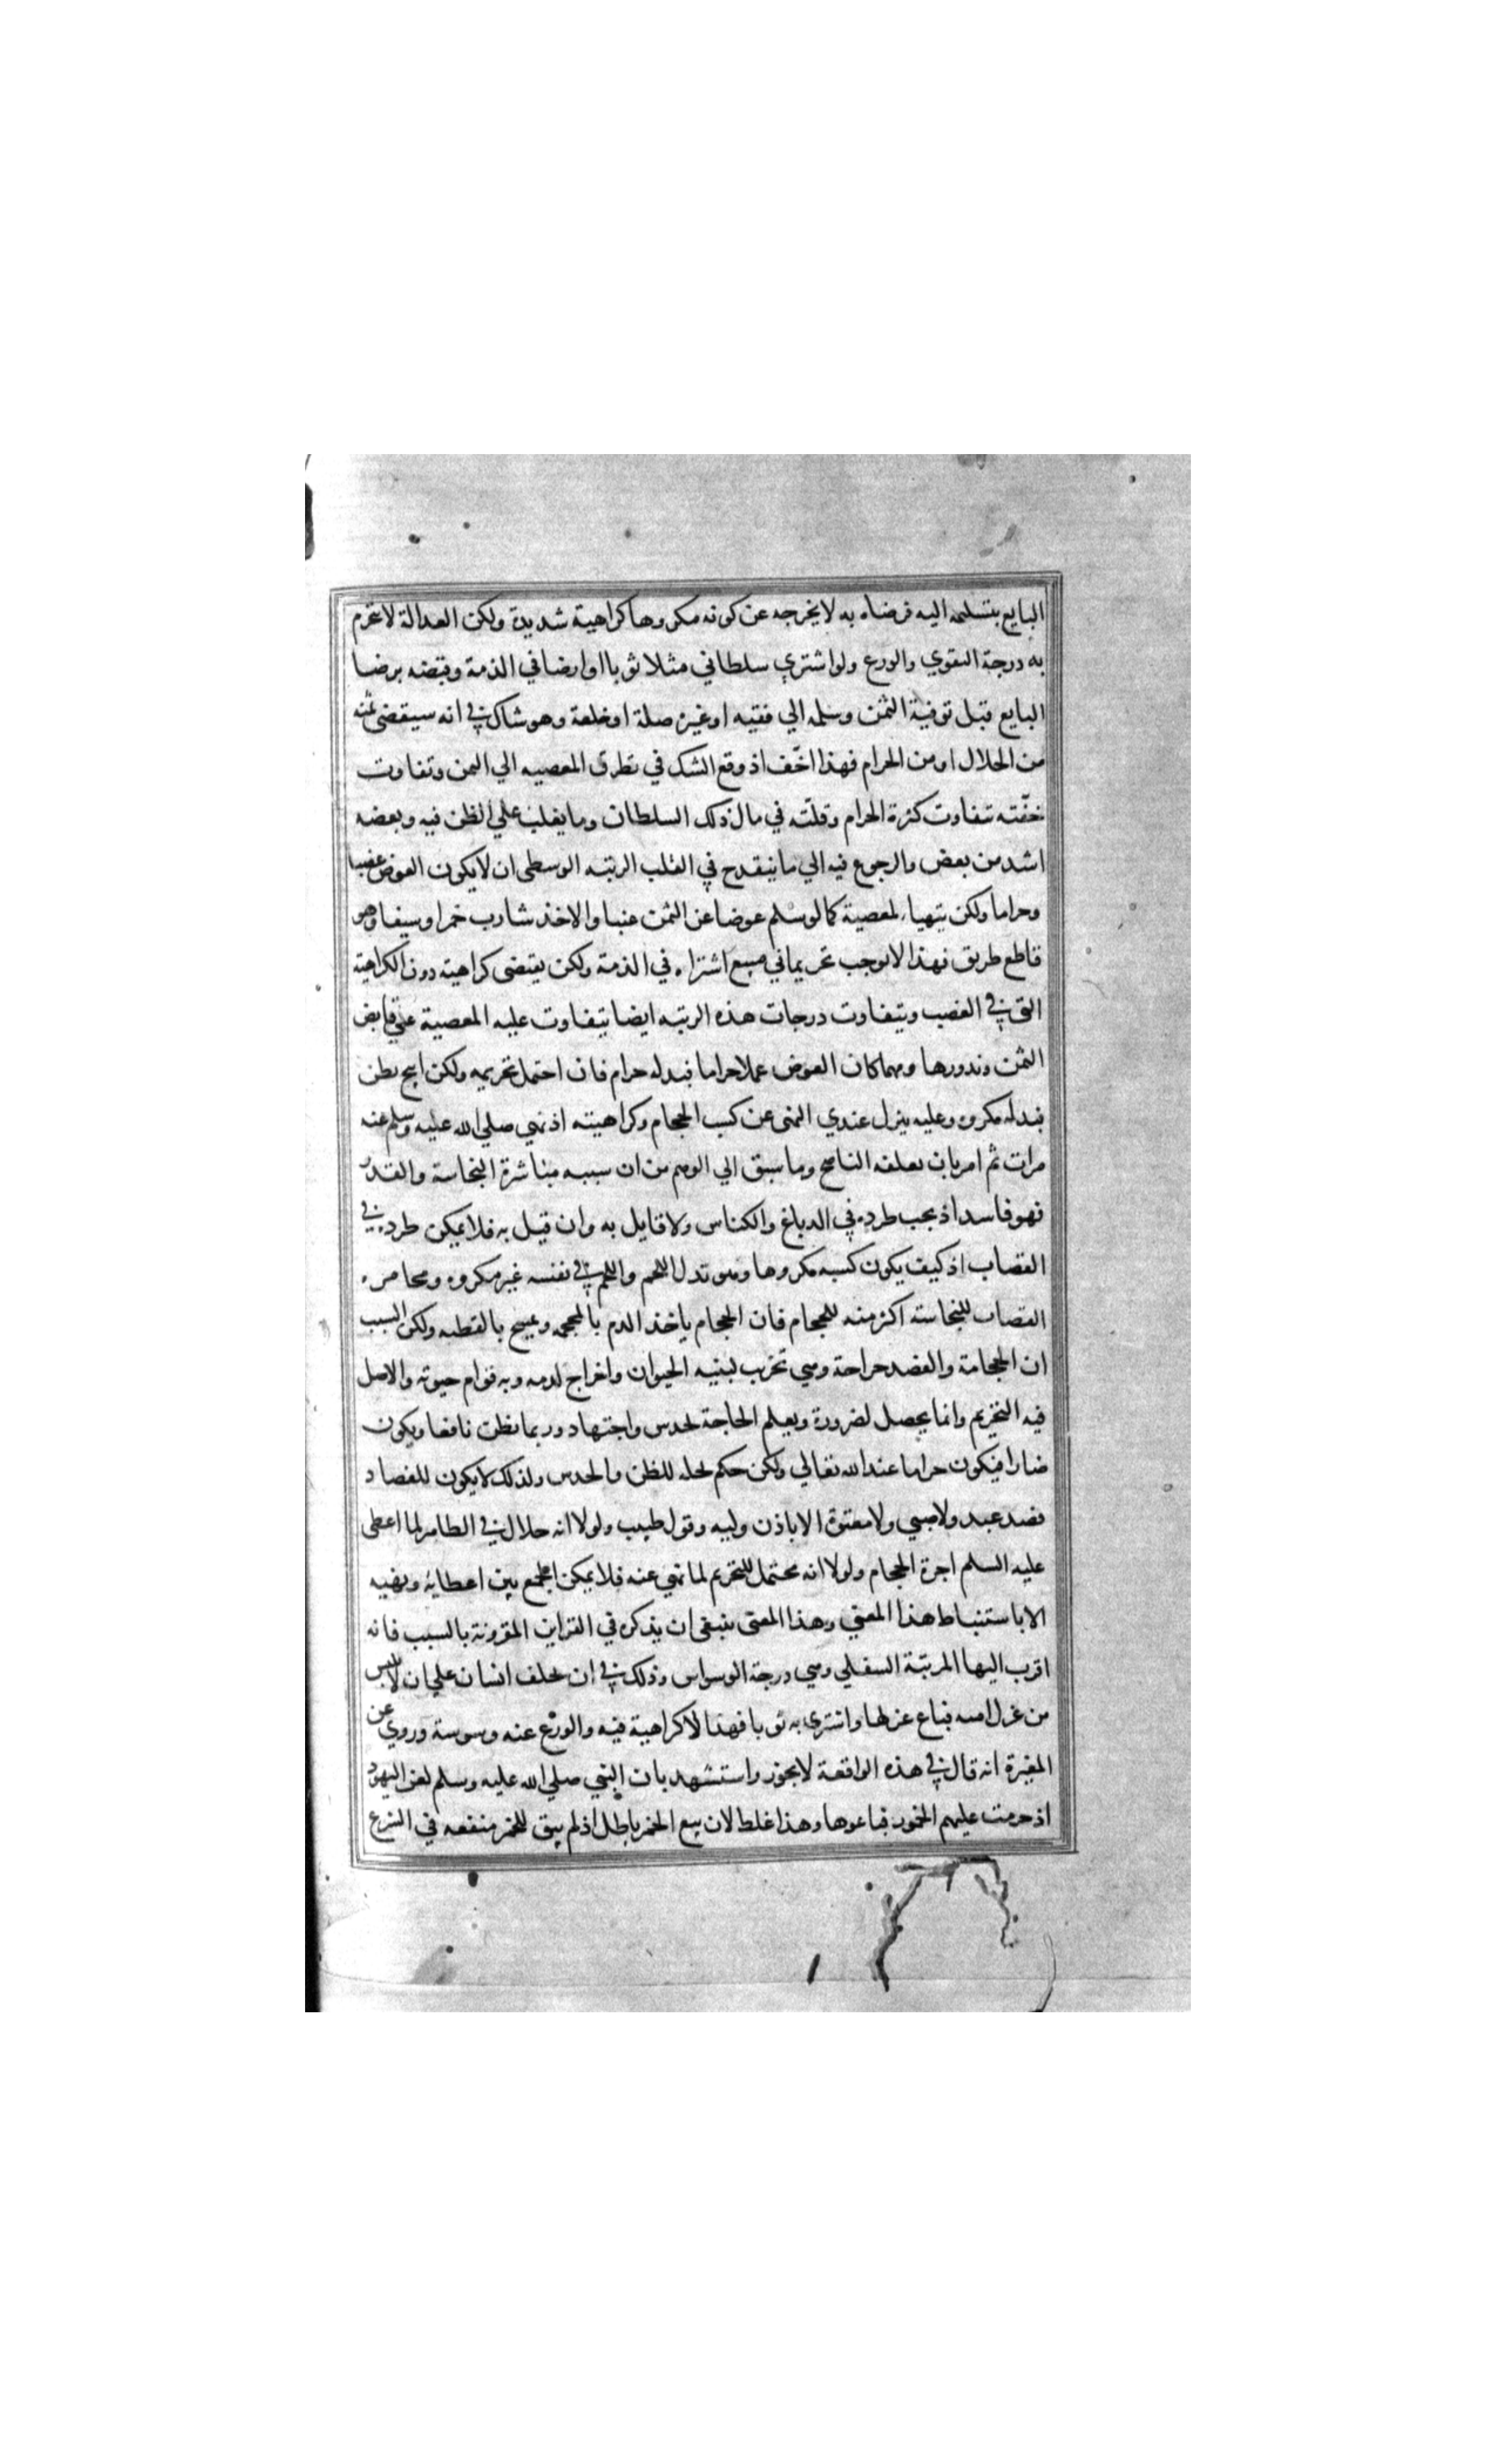 البايع بتسليمه اليه فرضاه به لا يخرجه عن كونه مكروها كراهية شديدة ولكن العدالة لا تخرم
به درجة التقوي والورع ولو اشتري سلطاني مثلا ثوبا او ارضا في الذمة وقبضه برضا
البايع قبل توفية الثمن وسلمه الي فقيه او غيره صلة او خلعة وهو شاك في انه سيقضى ثمنه
من الحلال او من الحرام فهذا اخف اذ وقع الشك في تطرق المعصيه الي الثمن وتفاوت
خفته بتفاوت كثرة الحرام وقلته في مال ذلك السلطان وما يغلب علي الظن فيه وبعضه
اشد من بعض والرجوع فيه الي ما ينقدح في القلب الرتبه الوسطى ان لا يكون العوض غصبا
وحراما ولكن يتهيا لمعصية كما لو سلم عوضا عن الثمن عنبا والاخذ شارب خمر او سيفا وهو
قاطع طريق فهذا لا يوجب تحريما في مبيع اشتراه في الذمة ولكن يقتضى كراهية دون الكراهية
التي في الغصب ويتفاوت درجات هذه الرتبه ايضا بتفاوت غلبه المعصية علي قابض
الثمن وندورها ومهما كان العوض عملا حراما فبدله حرام فان احتمل تحريمه ولكن ابيح بظن
فبدله مكروه وعليه ينزل عندي النهى عن كسب الحجام وكراهيته اذ نهي صلي الله عليه وسلم عنه
مرات ثم امر بان يعلف الناضح وما سبق الي الوهم من ان سببه مباشرة النجاسة والقذر
فهو فاسد اذ يجب طرده في الدباغ والكناس ولا قايل به وان قيل به فلا يمكن طرده في
القصاب اذ كيف يكون كسبه مكروها وهو بدل اللحم واللحم في نفسه غير مكروه ومخامره
القصاب للنجاسة اكثر منه للحجام فان الحجام ياخذ الدم بالمحجمه ويمسح بالقطنه ولكن السبب
ان الحجامة والفصد جراحة وهي تخريب لبنيه الحيوان واخراج لدمه وبه قوام حيوته والاصل
فيه التحريم وانما يحصل لضرورة ويعلم الحاجة بحدس واجتهاد وربما يظن نافعا ويكون
ضارا فيكون حراما عند الله تعالي ولكن حكم بحله للظن والحدس ولذلك لا يكون للفصاد
فصد عبد ولا صبي ولا معتوة الا باذن وليه وقول طبيب ولولا انه حلال في الظاهر لما اعطى
عليه السلم اجرة الحجام ولولا انه محتمل للتحريم لما نهي عنه فلا يمكن الجمع بين اعطايه ونهيه
الا باستنباط هذا المعني وهذا المعنى ينبغى ان يذكره في القراين المقرونة بالسبب فانه
اقرب اليها المرتبة السفلي وهي درجة الوسواس وذلك في ان يحلف انسان علي ان لا يلبس
من غزل امه فباع غزلها واشتري به ثوبا فهذا لا كراهية فيه والورع عنه وسوسة وروي عن
المغيرة انه قال في هذه الواقعة لا يجوز واستشهد بان النبي صلي الله عليه وسلم لعن اليهود
اذ حرمت عليهم الخمور فباعوها وهذا غلط لان بيع الخمر باطل اذ لم يبق للخمر منفعه في الشرع